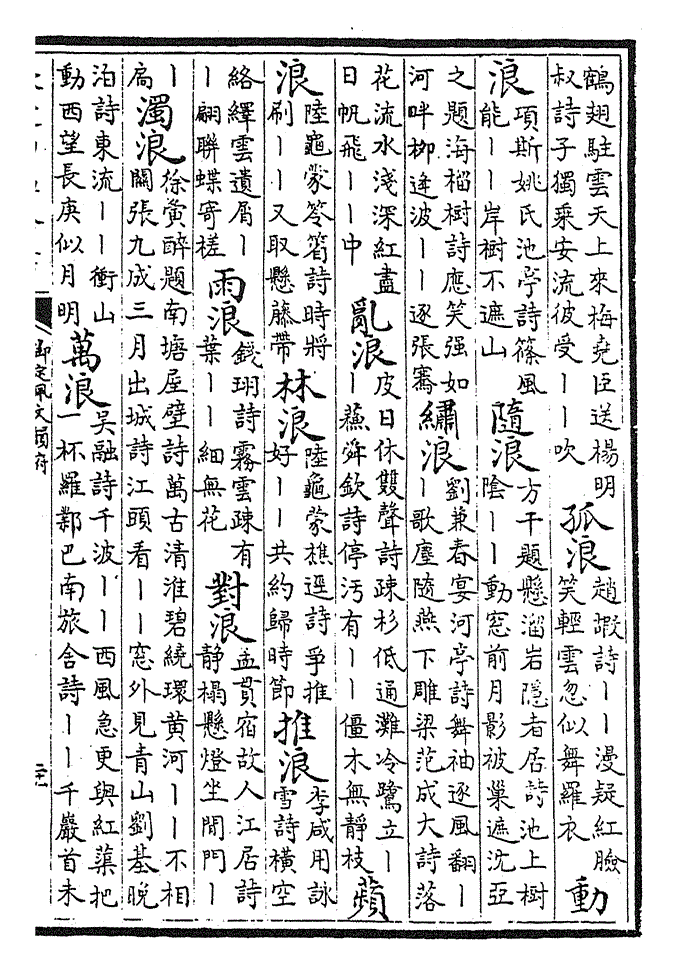 鶴翅駐雲天上來梅堯臣送楊明
叔詩子獨乘安流彼受丨丨吹
孤浪
趙嘏詩丨丨漫疑紅臉
笑輕雲忽似舞羅衣
動
浪
項斯姚氏池亭詩篠風
能丨丨岸樹不遮山
隨浪
方干題懸溜岩隱者居詩池上樹
陰丨丨動窓前月影被巢遮沈亞
之題海榴樹詩應笑强如
河畔柳逢波丨丨逐張騫
繡浪
劉兼春宴河亭詩舞袖逐風翻丨
丨歌塵隨燕下雕梁范成大詩落
花流水淺深紅盡
日帆飛丨丨中
亂浪
皮日休雙聲詩疎杉低通灘冷鷺立丨
丨蘇舜欽詩停汚有丨丨僵木無靜枝
蘋
浪
陸龜蒙笭箵詩時將
刷丨丨又取懸藤帶
林浪
陸龜蒙樵逕詩爭推
好丨丨共約歸時節
推浪
李咸用詠
雪詩橫空
絡繹雲遺屑丨
丨翩聯蝶寄槎
雨浪
錢珝詩霧雲疎有
葉丨丨細無花
對浪
孟貫宿故人江居詩
靜榻懸燈坐閒門丨
丨
扃
濁浪
徐夤醉題南塘屋壁詩萬古清淮碧繞環黃河丨丨不相
關張九成三月出城詩江頭看丨丨窓外見青山劉基晚
泊詩東流丨丨衝山
動西望長庚似月明
萬浪
吳融詩千波丨丨西風急更與紅蕖把
一杯羅鄴巴南旅舍詩丨丨千巖首未
御定佩文韻府